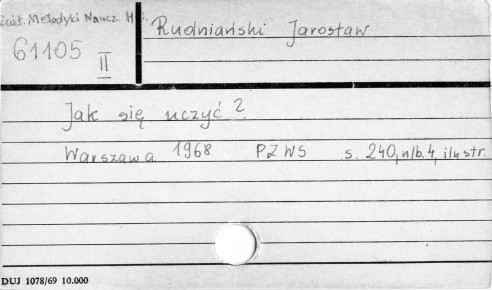 Zakł. Metodyki Naucz. H i.
61105 II
Rudniański Jarosław
Jak się uczyć?
Warszawa 1968 PZWS s. 240, nlb. 4, ilustr.
DUJ 1078/69 10.000